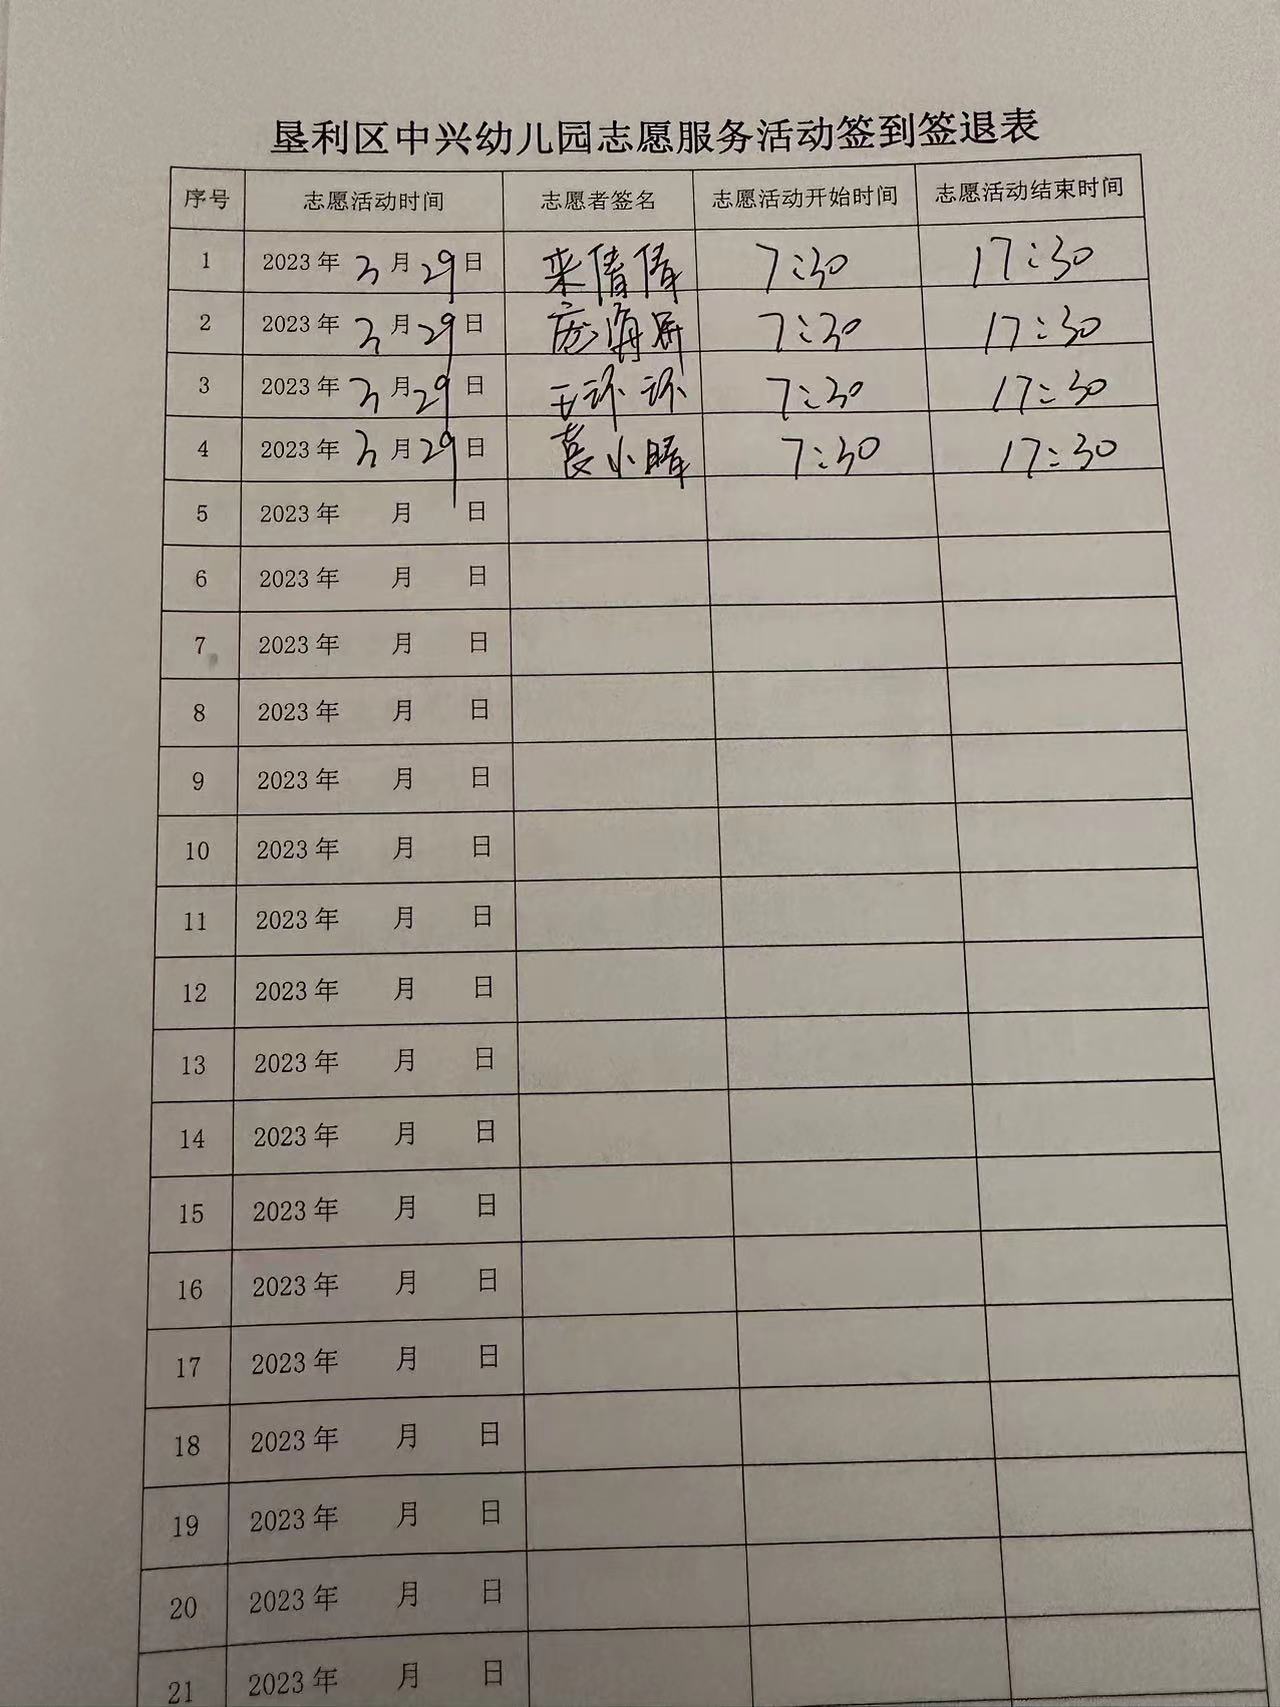 垦利区中兴幼儿园志愿服务活动签到签退表
序号 志愿活动时间 志愿者签名 志愿活动开始时间 志愿活动结束时间
1 2023年 3月29日 来倩倩 7:30 17:30
2 2023年 3月29日 庞海屏 7:30 17:30
3 2023年 3月29日 王环环 7:30 17:30
4 2023年 3月29日 袁小晴 7:30 17:30
5 2023年 月 日
6 2023年 月 日
7 2023年 月 日
8 2023年 月 日
9 2023年 月 日
10 2023年 月 日
11 2023年 月 日
12 2023年 月 日
13 2023年 月 日
14 2023年 月 日
15 2023年 月 日
16 2023年 月 日
17 2023年 月 日
18 2023年 月 日
19 2023年 月 日
20 2023年 月 日
21 2023年 月 日